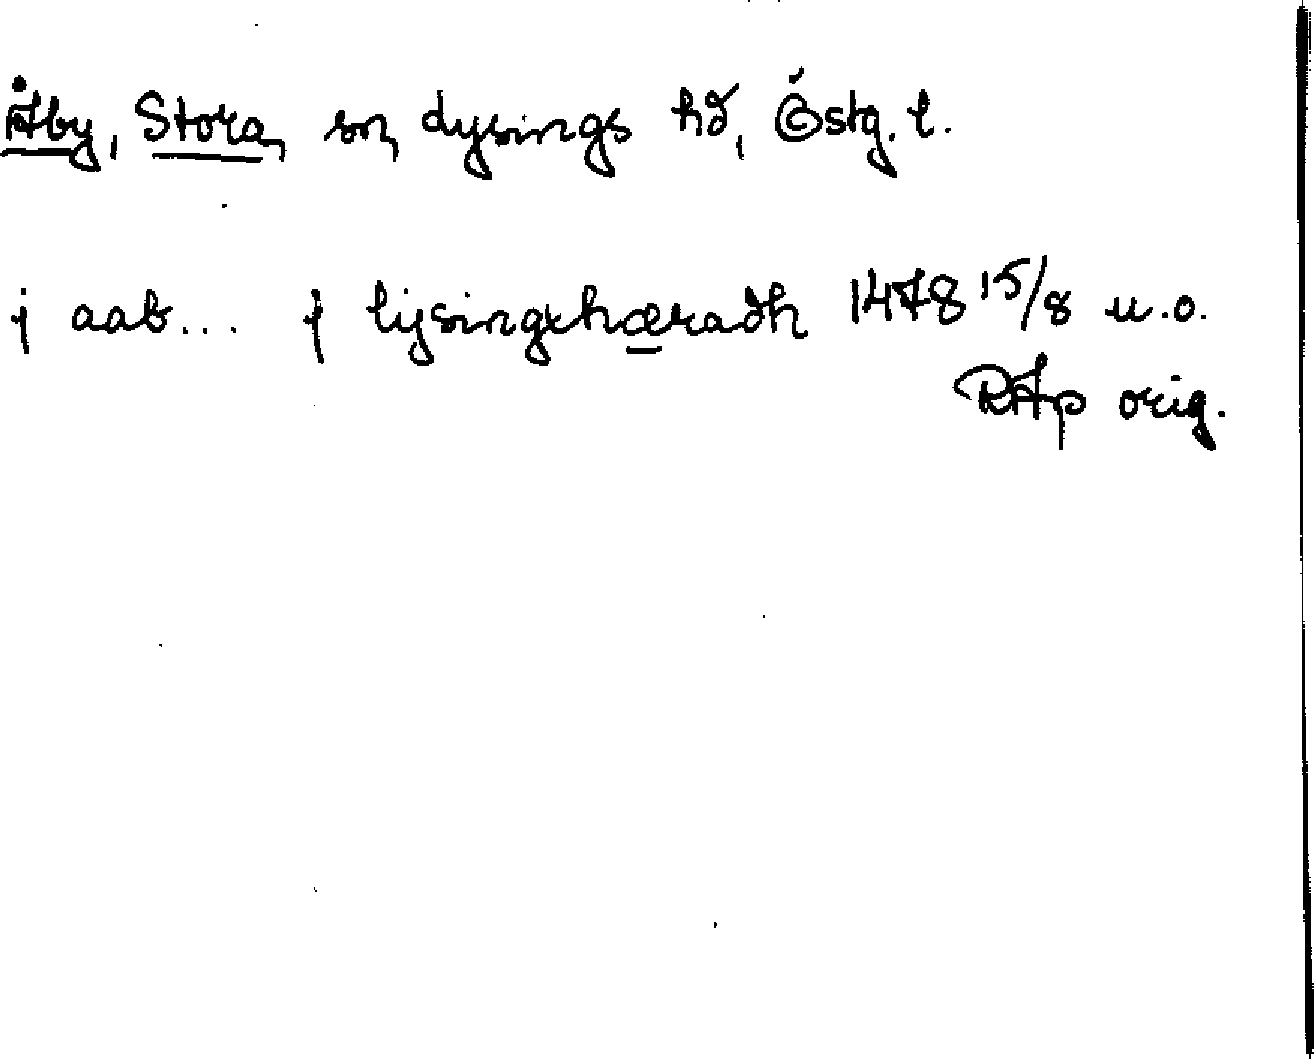 Åby, Stora, sn, Lysings hd, Östg. l.
j aab... j lysingxhæradh 1478 15/8 u.o.
RAp orig.